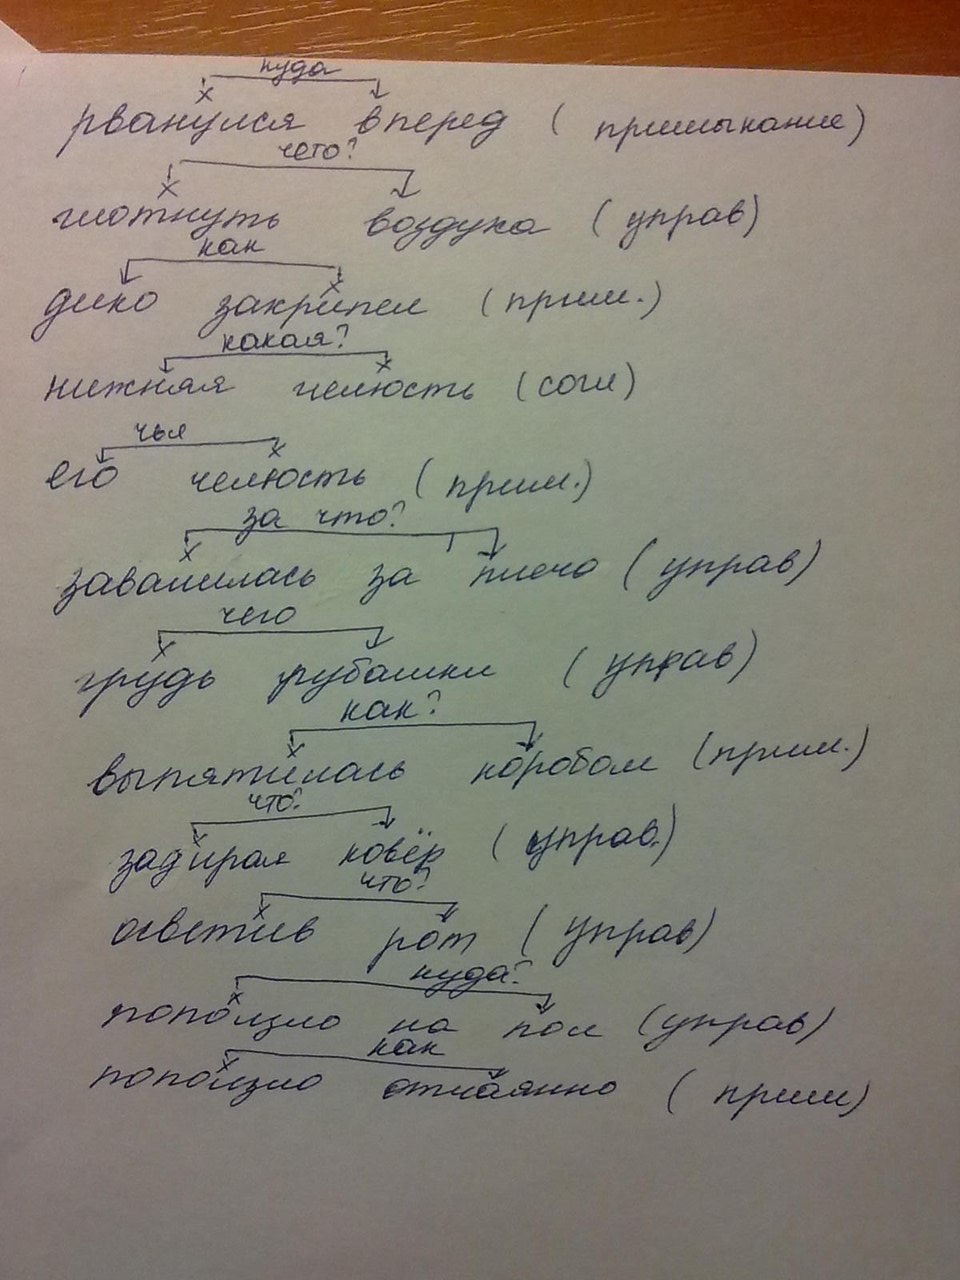 куда
рванулся вперед (примыкание)
чего?
глотнуть воздуха (управ)
как
дико захрипел (прим.)
какая?
нижняя челюсть (согл)
чья
его челюсть (прим.)
за что?
завалилась за плечо (управ)
чего
грудь рубашки (управ)
как?
выпятилась коробом (прим.)
что?
задирая ковёр (управ.)
что?
осветив рот (управ)
куда?
поползло на пол (управ)
как
поползло отчаянно (прим)